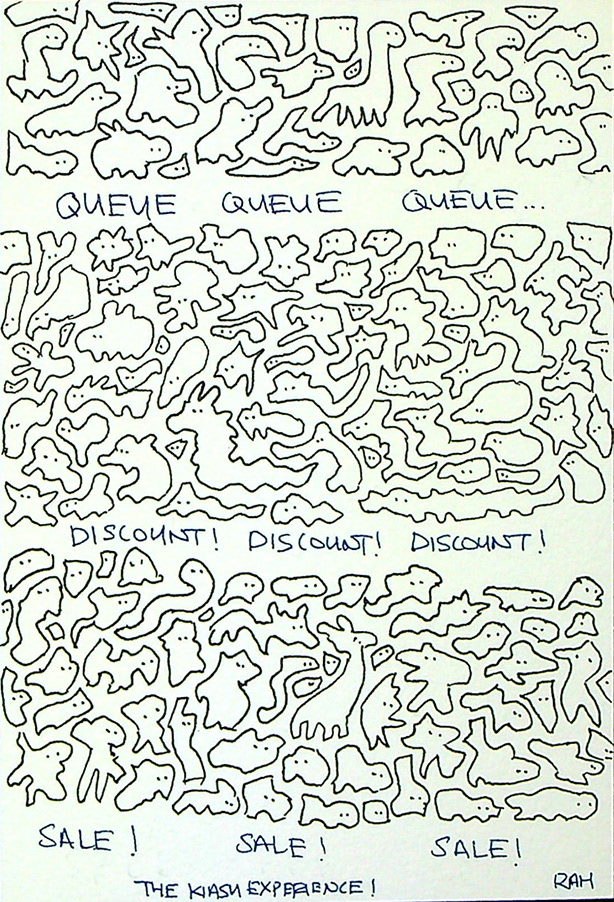 QUEUE QUEUE QUEUE...
DISCOUNT! DISCOUNT! DISCOUNT!
SALE! SALE! SALE!
THE KIASU EXPERIENCE!
RAH